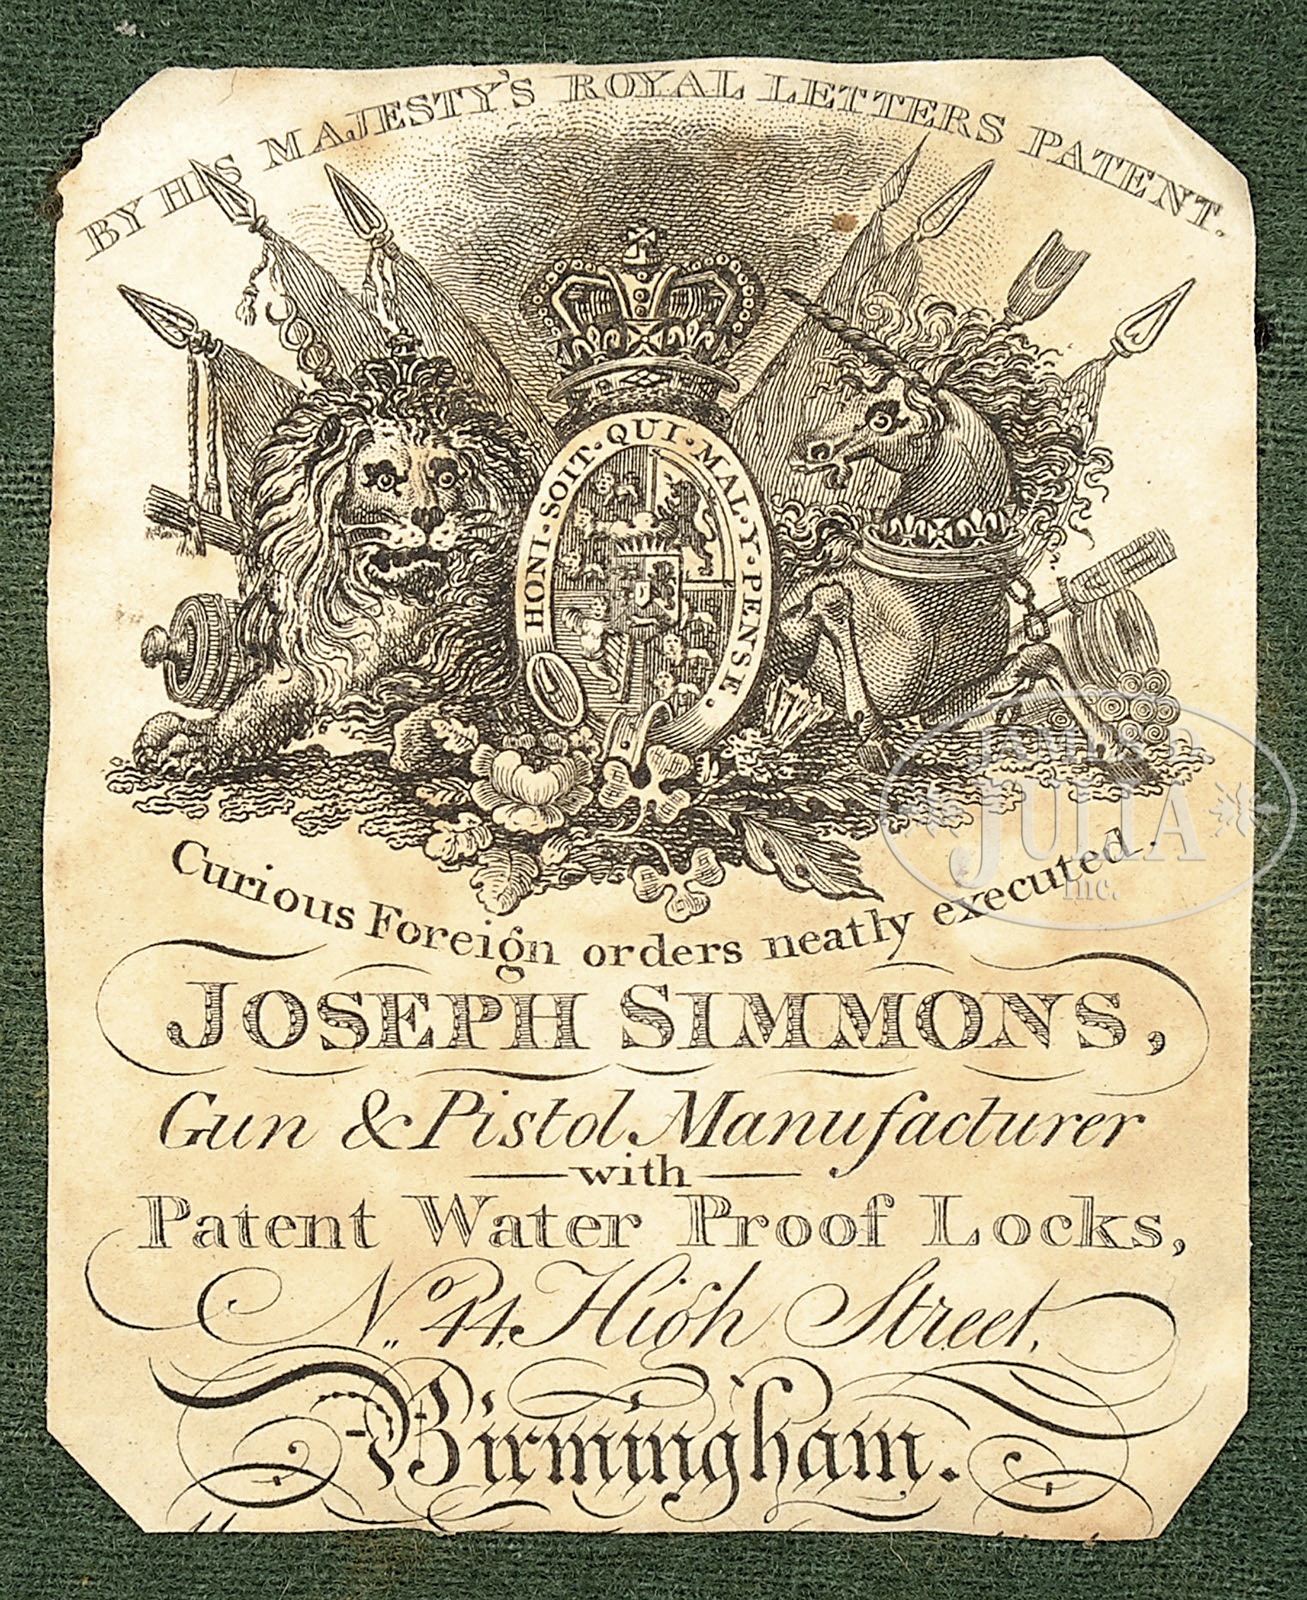 BY HIS MAJESTY'S ROYAL LETTERS PATENT.
HONI·SOIT·QUI·MAL·Y·PENSE.
JAMES D.
JULIA
Inc.
Curious Foreign orders neatly executed.
JOSEPH SIMMONS,
Gun & Pistol Manufacturer
with
Patent Water Proof Locks,
No. 44, High Street,
Birmingham.